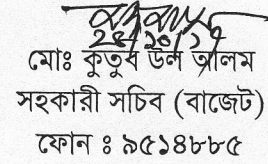 ২৪/১০/১৭
মোঃ কুতুব উল আলম
সহকারী সচিব (বাজেট)
ফোন ঃ ৯৫১৪৮৮৫